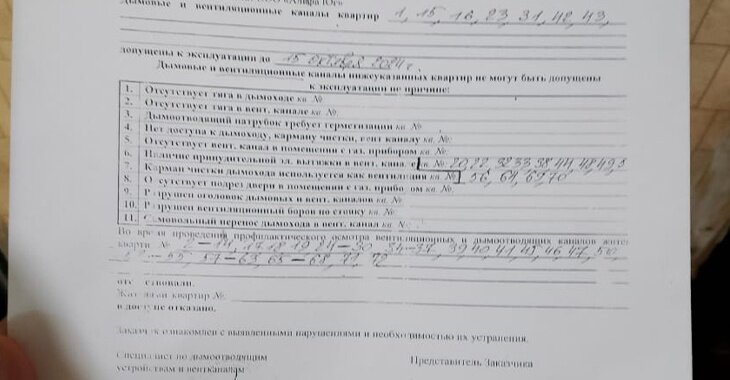 Дымовые и вентиляционные каналы квартир 1, 15, 16, 23, 31, 42, 43,
допущены к эксплуатации до 15 октября 2024г.
Дымовые и вентиляционные каналы нижеуказанных квартир не могут быть допущены
к эксплуатации по причине:
1. Отсутствует тяга в дымоходе кв. №
2. Отсутствует тяга в вент. канале кв. №
3. Дымоотводящий патрубок требует герметизации кв. №
4. Нет доступа к дымоходу, карману чистки, вент каналу кв. №
5. Отсутствует вент. канал в помещении с газ. прибором кв. №
6. Наличие принудительной эл. вытяжки в вент. кана. е кв. № 20, 22, 32 33, 38, 44, 48, 49, 5
7. Карман чистки дымохода используется как вентиляция кв. № 56, 64, 69, 70
8. Отсутствует подрез двери в помещении с газ. прибором кв. №
9. Разрушен оголовок дымовых и вент. каналов кв. №
10. Разрушен вентиляционный боров по стояку кв. №
11. Самовольный перенос дымохода в вент. канал кв. №
Во время проведения профилактического осмотра вентиляционных и дымоотводящих каналов жите
кварти № 2-14, 17 18 19 24-30, 34-37, 39 40 41, 45, 46, 47, 50,
-55, 57-63, 65-68, 71, 72
отсутствовали.
Жители квартир №
в доступе отказано.
Заказчик ознакомлен с выявленными нарушениями и необходимостью их устранения.
Специалист по дымоотводящим
устройствам и вентканалам
Представитель Заказчика